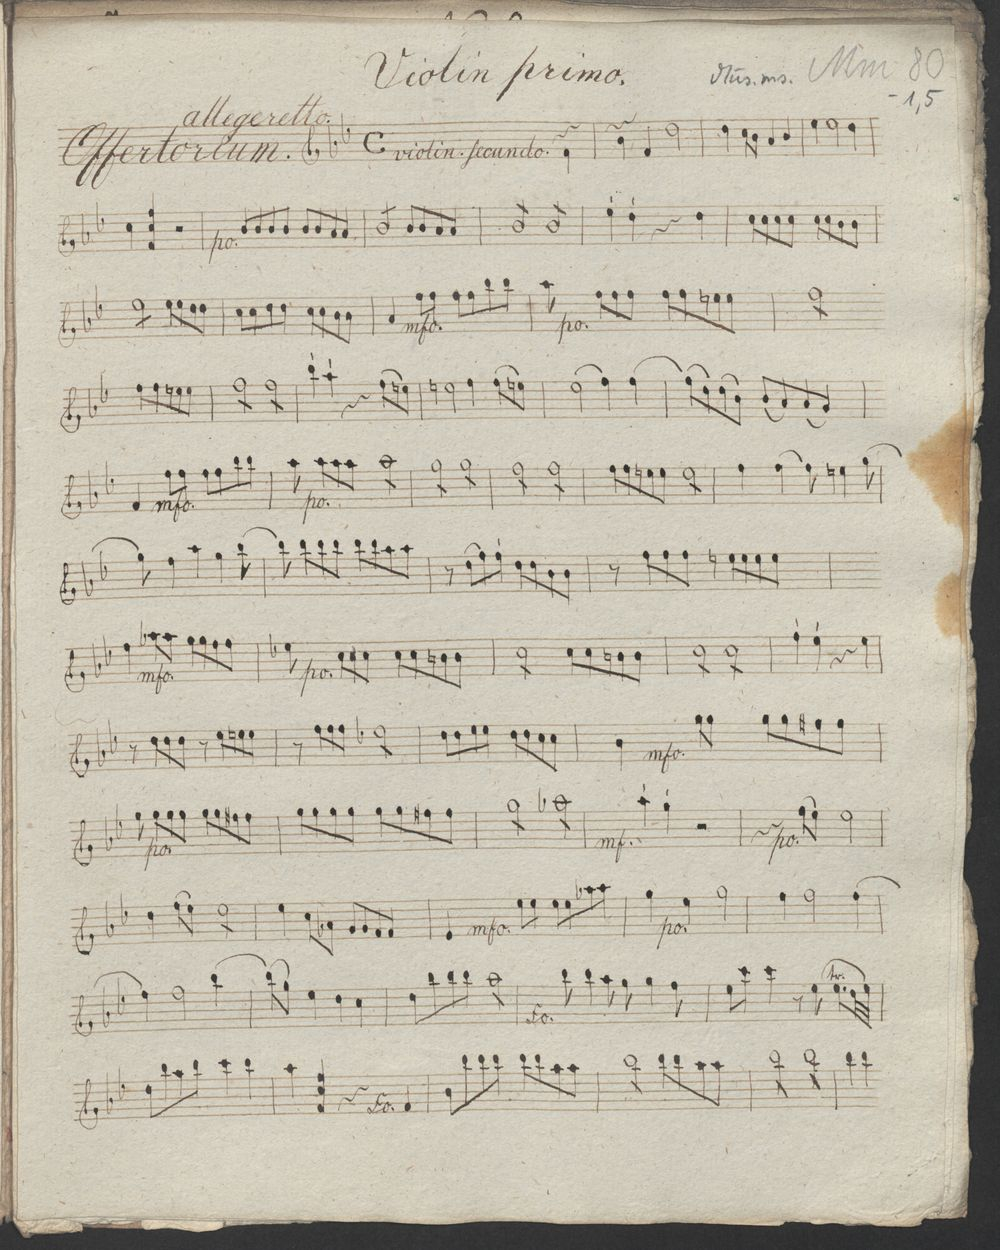 Violin primo.
Mus.ms. Mm 80
- 1,5
allegeretto.
Offertorium. C violin. secundo.
po.
mfo. po.
mfo. po.
mfo. po.
mfo.
po. mf. po.
mfo. po.
Fo. tr.
Fo.